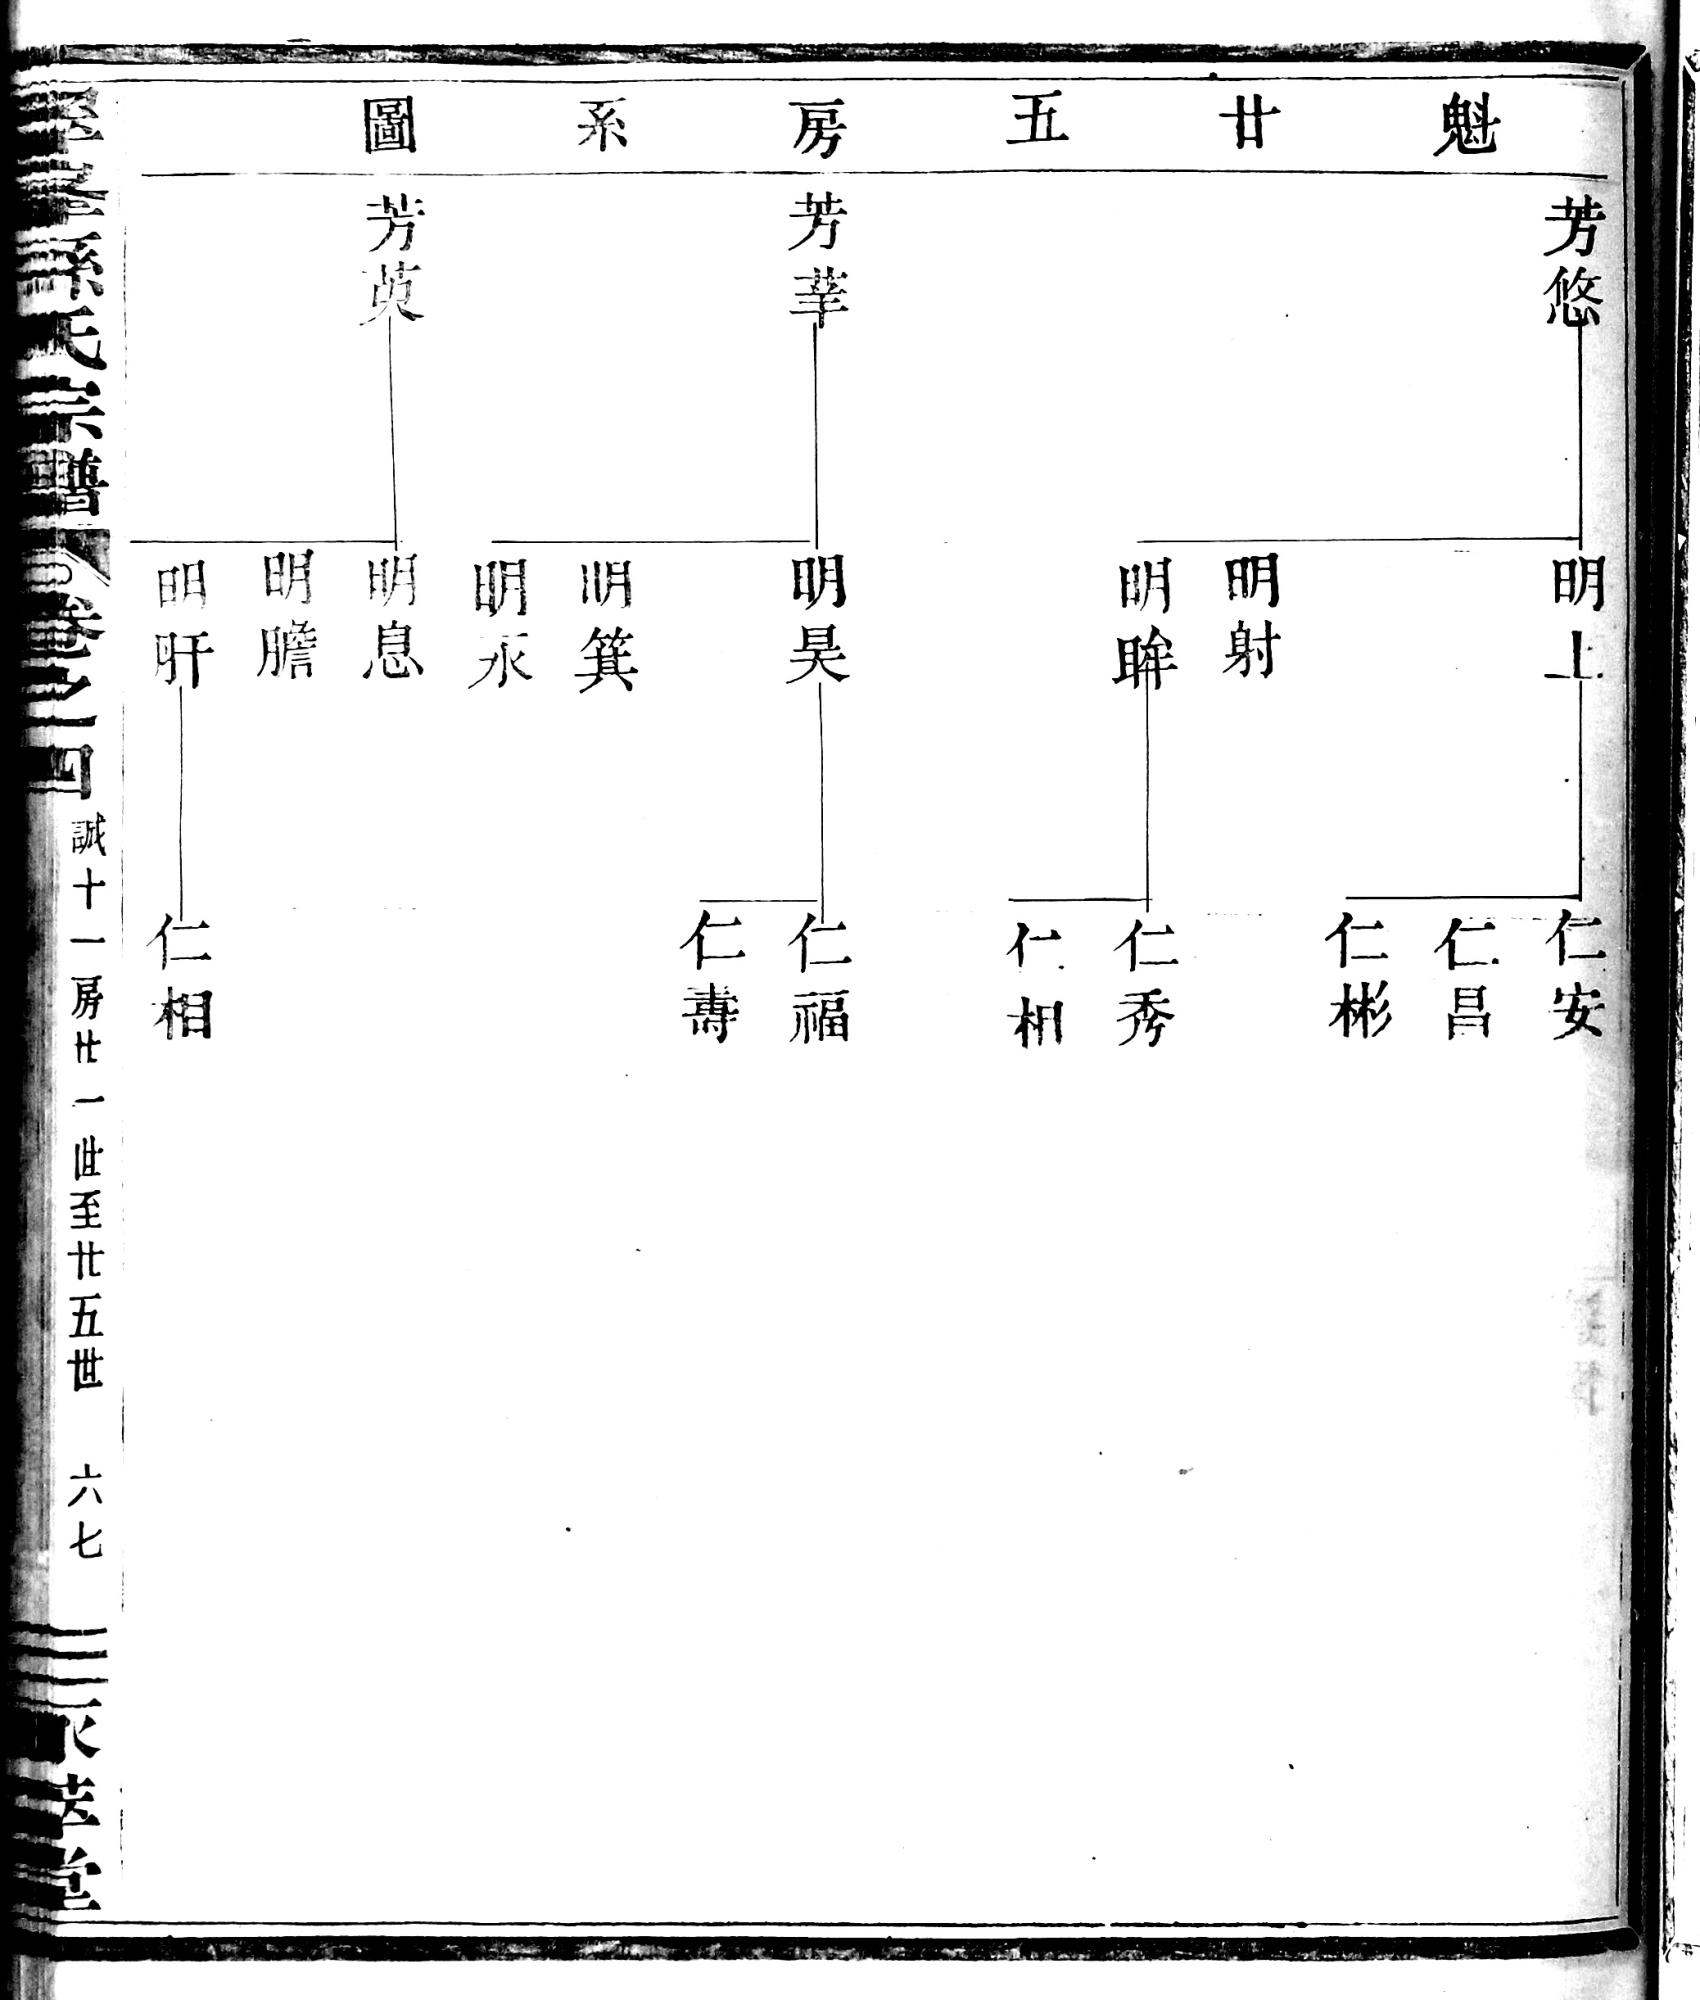 魁廿五房系圖
芳悠
芳莘
芳萸
明上
明射
明眸
明昊
明箕
明永
明息
明膽
明肝
仁安
仁昌
仁彬
仁秀
仁相
仁福
仁壽
仁相
孫氏宗譜
卷之四
誠十一房廿一世至廿五世
六七
萃堂